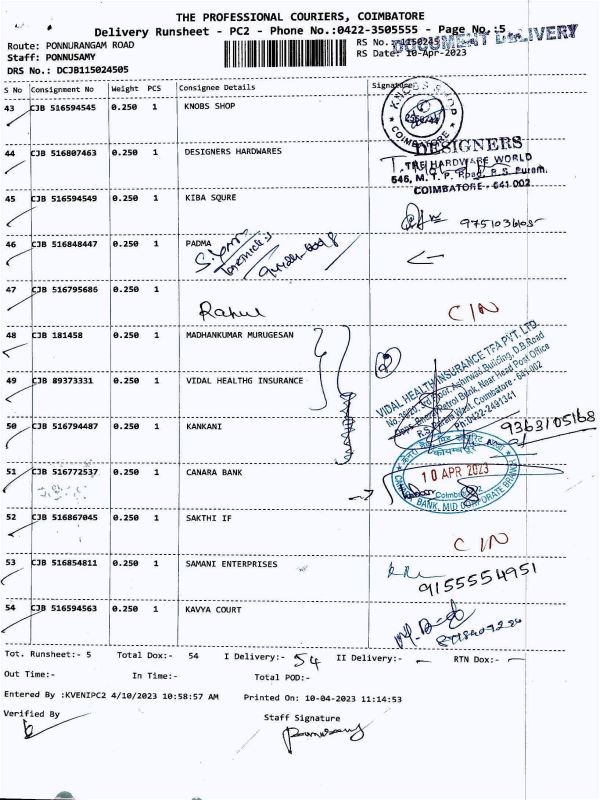 THE PROFESSIONAL COURIERS, COIMBATORE
Delivery Runsheet - PC2 - Phone No.:0422-3505555 - Page No.:5
Route: PONNURANGAM ROAD
RS No.:
DOCUMENT DELIVERY
Staff: PONNUSAMY
RS Date: 10-Apr-2023
DRS No.: DCJB115024505
S No Consignment No Weight PCS Consignee Details Signature
43 CJB 516594545 0.250 1 KNOBS SHOP
KNOBS SHOP
COIMBATORE
44 CJB 516807463 0.250 1 DESIGNERS HARDWARES
DESIGNERS
THE HARDWARE WORLD
546, M. T. P. Road, R.S. Puram,
COIMBATORE - 641 002
45 CJB 516594549 0.250 1 KIBA SQURE
46 CJB 516848447 0.250 1 PADMA
47 CJB 516795686 0.250 1
Rahul
C/N
48 CJB 181458 0.250 1 MADHANKUMAR MURUGESAN
2
VIDAL HEALTH INSURANCE TPA PVT. LTD.
R.S.Puram West, Coimbatore - 641 002
Ph:0422-2491341
49 CJB 89373331 0.250 1 VIDAL HEALTHG INSURANCE
50 CJB 516794487 0.250 1 KANKANI
9363105168
51 CJB 516772537 0.250 1 CANARA BANK
10 APR 2023
CANARA BANK, MID CORPORATE BRANCH
52 CJB 516867045 0.250 1 SAKTHI IF
C/N
53 CJB 516854811 0.250 1 SAMANI ENTERPRISES
9155554951
54 CJB 516594563 0.250 1 KAVYA COURT
Tot. Runsheet:- 5 Total Dox:- 54 I Delivery:- 54 II Delivery:- – RTN Dox:- –
Out Time:- In Time:- Total POD:-
Entered By :KVENIPC2 4/10/2023 10:58:57 AM Printed On: 10-04-2023 11:14:53
Verified By
Staff Signature
Ponnusamy